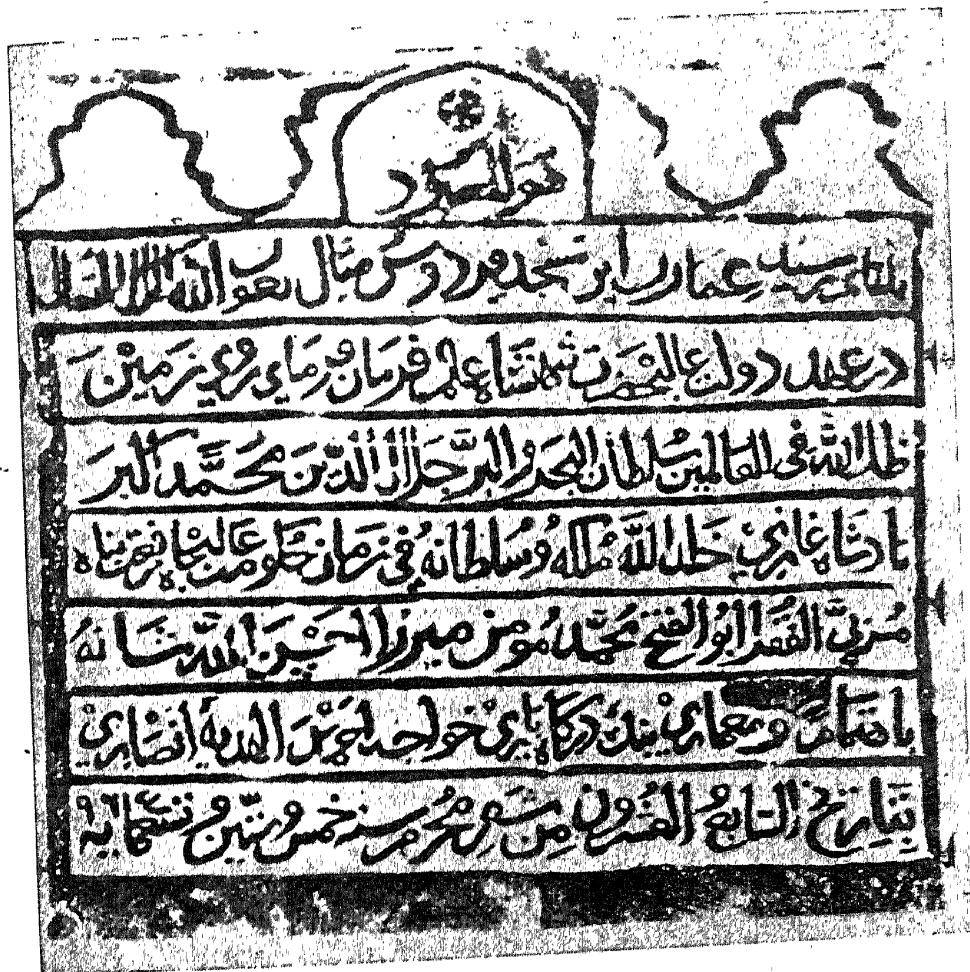 هو المعبود
بتمامی رسید عمارت این مسجد فردوس مثال بعون الله الملک المتعال
در عهد دولت عالیحضرت شهنشاه عالم فرمان فرمای روی زمین
ظل الله فی العالمین سلطان البحر والبر جلال الدین محمد اکبر
بادشاه غازی خلد الله ملکه وسلطانه فی زمان حکومت عالیجاه
مربی الفقرا ابوالفتح محمد مومن میرزا احسن الله شانه
باهتمام ومعماری بنده درگاه باری خواجه انصاری
بتاریخ السابع العشرون من شهر محرم سنه خمس وستین وتسعمایه